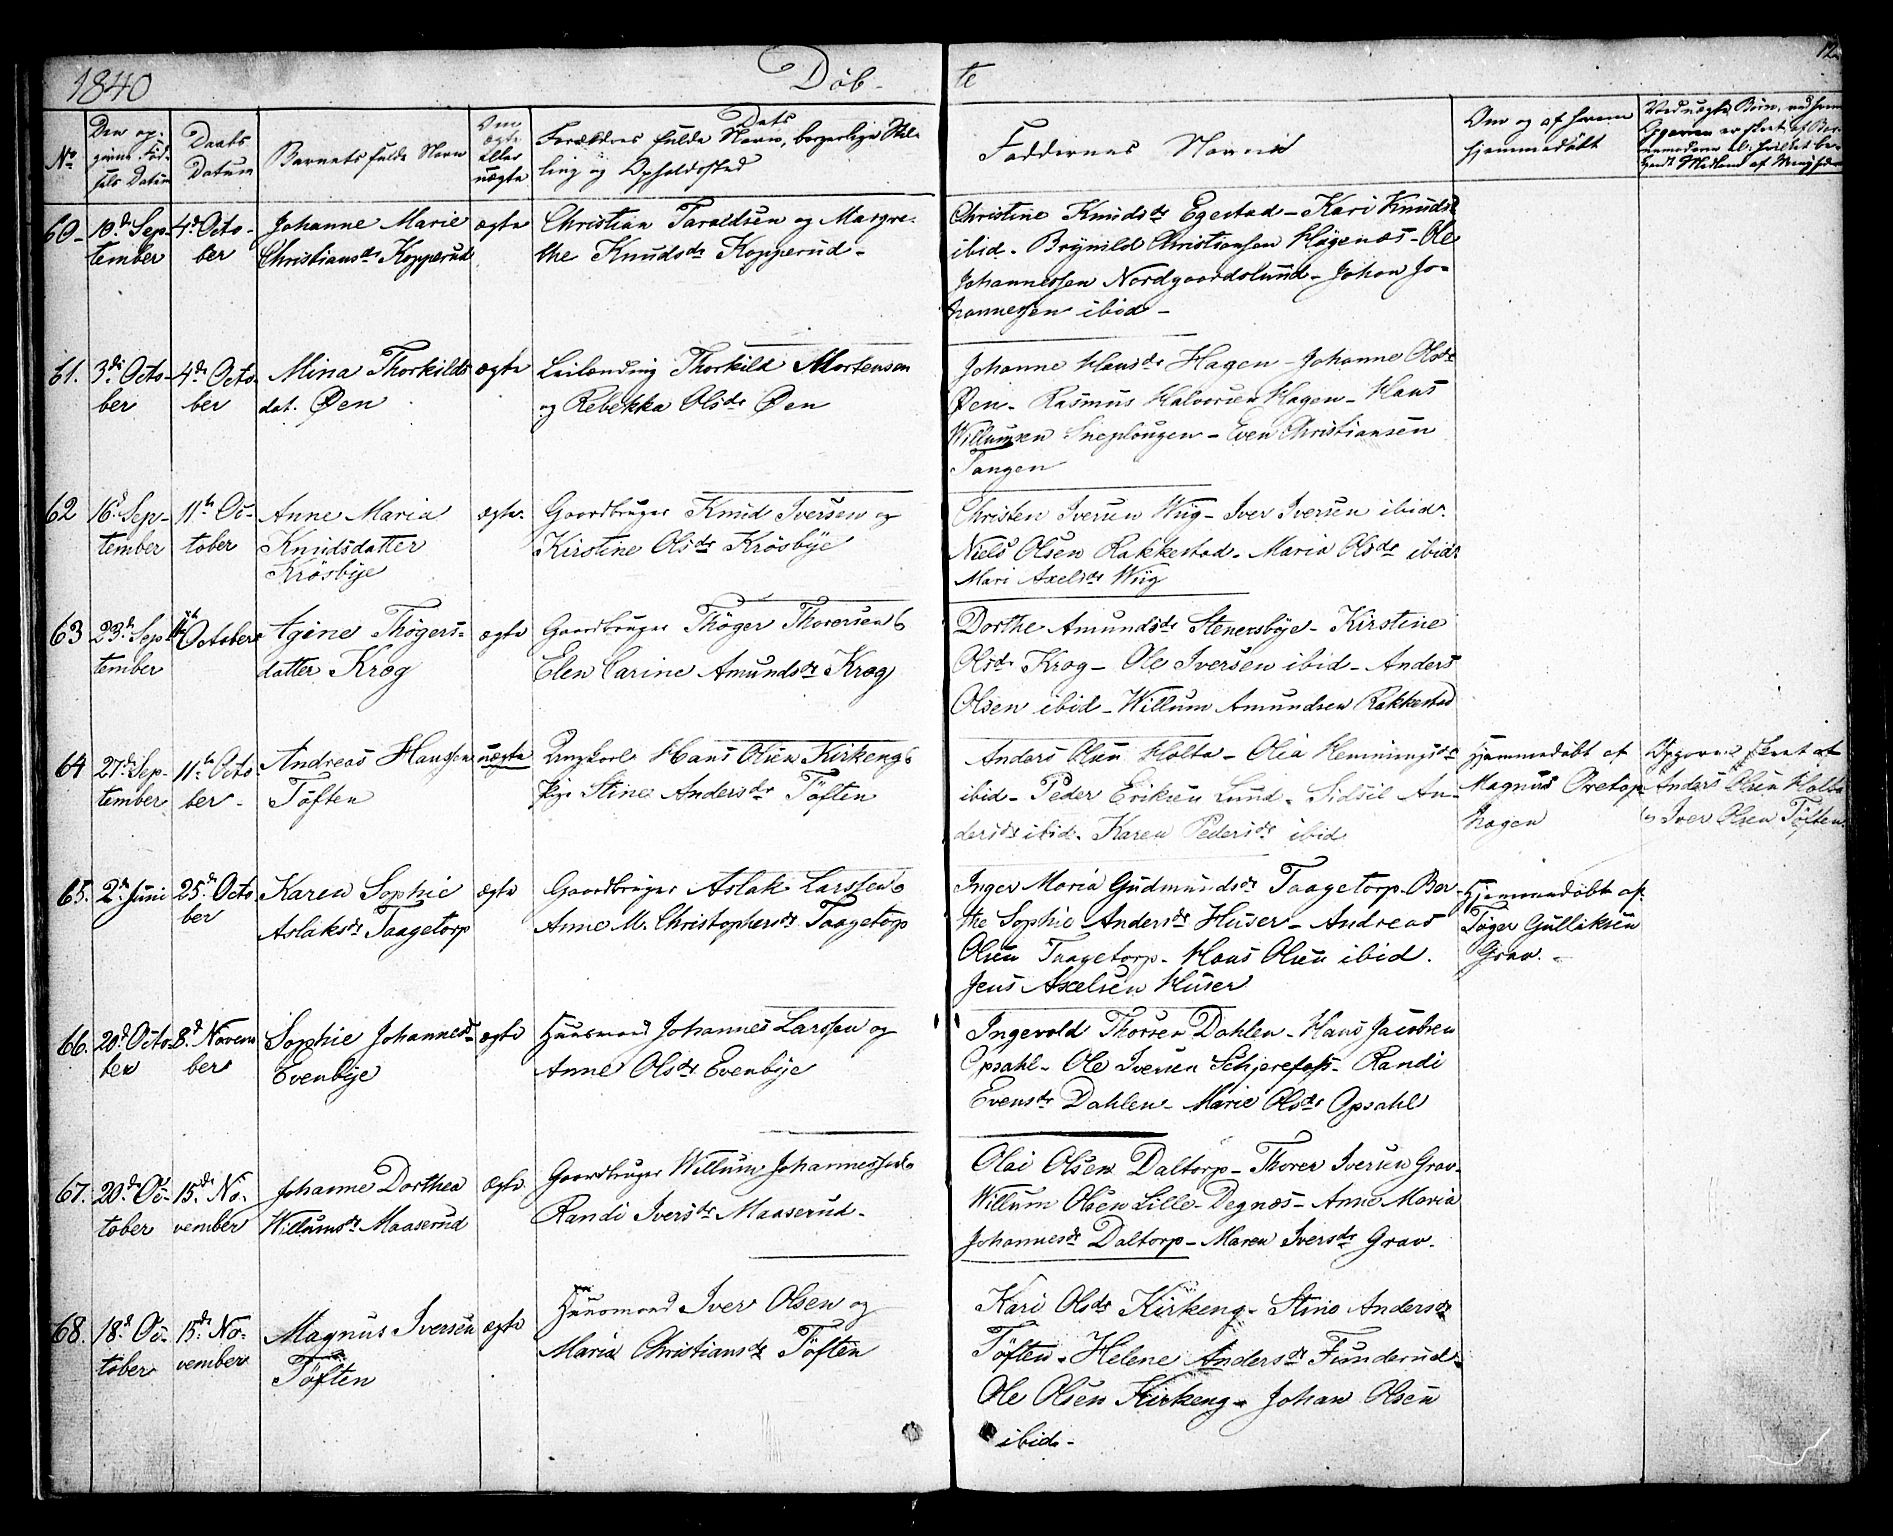 1840
Døb-
te
12
No
Den op-
givne Fød-
sels Datum
Daabs
Datum
Barnets fulde Navn
Om
ægte
eller
uægte
Dets
Forældres fulde Navn, borgerlige Stil-
ling og Opholdssted
Faddernes Navne
Om og af hvem
hjemmedøbt
Ved uægte Børn, ved hvem
60- 19de Sep-
tember
4de Octo-
ber
Johanne Marie
Christiansdr Kopperud
ægte
Christian Taraldsen og Margre-
the Knudsdr Kopperud-
Christine Knudsdr Egestad- Kari Knudsdr
ibid- Brynild Christiansen Høgenæs- Ole
Johannessen Nordgaardslund- Johan Jo-
hannessen ibid-
61. 3die Octo-
ber
4de Octo-
ber
Mina Thorkilds
dat. Øen
ægte
Leilænding Thorkild Mortensen
og Rebekka Olsdr Øen
Johanne Hansdr Hagen- Johanne Olsdr
Øen- Rasmus Halvorsen Hagen- Hans
Willumsen Sneplougen- Even Christiansen
Tangen
62 16d Sep-
tember
11te Oc-
tober
Anne Maria
Knudsdatter
Krösbye
ægte.
Gaardbruger Knud Iversen og
Kirstine Olsdr Krösbye
Christen Iversen Wiig- Iver Iversen ibid-
Niels Olsen Rakkestad- Maria Olsdr ibid-
Mari Axelsdr Wiig
63 23de Sep-
tember
11te October
Agine Thøgers-
datter Krog
ægte
Gaardbruger Thøger Thoresen &
Elen Carine Amundsdr Krog
Dorthe Amundsdr Stenersbye- Kirstine
Olsdr Krog- Ole Iversen ibid- Anders
Olsen ibid- Willum Amundsen Rakkestad
64 27de Sep-
tember
11te Octo-
ber-
Andreas Hanssen
Töften
uægte
Ungkarl Hans Olsen Kirkeng &
Pige Stine Andersdr Töften
Anders Olsen Holta- Olea Hemmingsdr
ibid- Peder Eriksen Lund- Sidsil An-
dersdr ibid- Karen Pedersdr ibid
Hjemmedøbt af
Magnus Oretop-
hagen
Opgivne skeet af
Anders Olsen Holta
og Iver Olsen Töften
65. 2den Juni
25de Octo-
ber
Karen Sophie
Aslaksdr Taagetorp
ægte
Gaardbruger Aslak Larssen &
Anne M. Christophersdr Taagetorp
Inger Maria Gudmundsdr Taagetorp- Ber-
the Sophie Andersdr Huser- Andreas
Olsen Taagetorp- Hans Olsen ibid.
Jens Axelsen Huser
Hjemmedøbt af
Töger Gulliksen
Grav.-
66. 20de Octo-
ber
8de Novem
ber
Sophie Johannesdr
Evenbye
ægte
Huusmand Johannes Larssen og
Anne Olsdr Evenbye
Ingevald Thorsen Dahlen- Hans Jacobsen
Opsahl- Ole Iversen Schjærefoss- Randi
Evensdr Dahlen- Marie Olsdr Opsahl
67. 20de Oc-
tober
15de No-
vember
Johanne Dorthea
Willumsdr Maaserud
ægte
Gaardbruger Willum Johannessen &
Randi Iversdr Maaserud-
Olai Olsen Daltorp- Thorer Iversen Grav-
Willum Olsen Lille-Degnæs- Anne Maria
Johannesdr Daltorp- Maren Iversdr Grav-
68. 18de Oc-
tober
15de No-
vember
Magnus Iversen
Töften
ægte
Huusmand Iver Olsen og
Maria Christiansdr Töften
Kari Olsdr Kirkeng- Stine Andersdr
Töften- Helene Andersdr Funderud-
Ole Olsen Kirkeng- Johan Olsen
ibid-